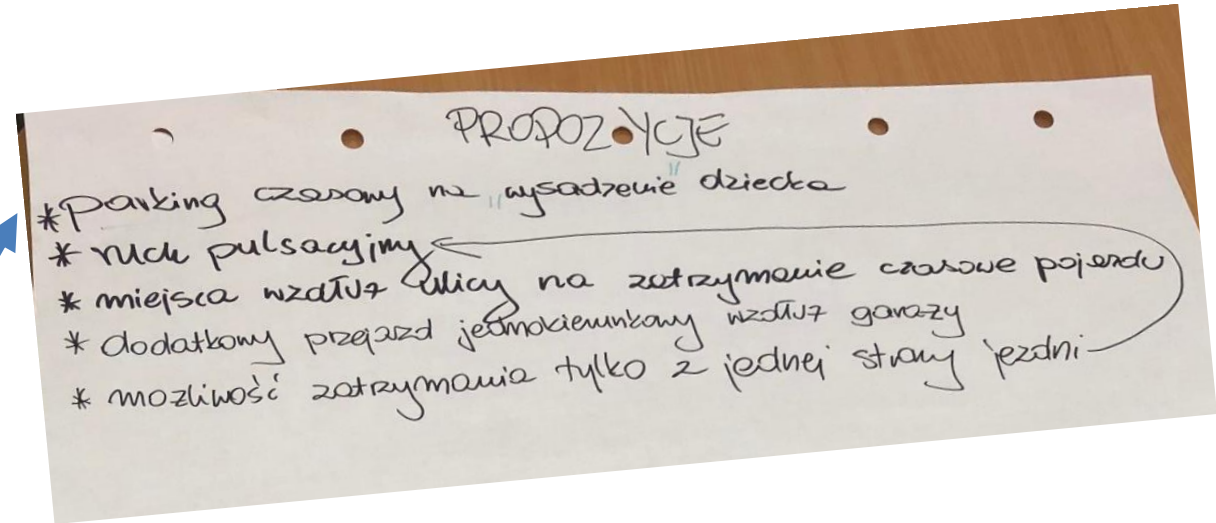 PROPOZYCJE
* parking czasowy na "wysadzenie" dziecka
* ruch pulsacyjny
* miejsca wzdłuż ulicy na zatrzymanie czasowe pojazdu
* dodatkowy przejazd jednokierunkowy wzdłuż garaży
* możliwość zatrzymania tylko z jednej strony jezdni